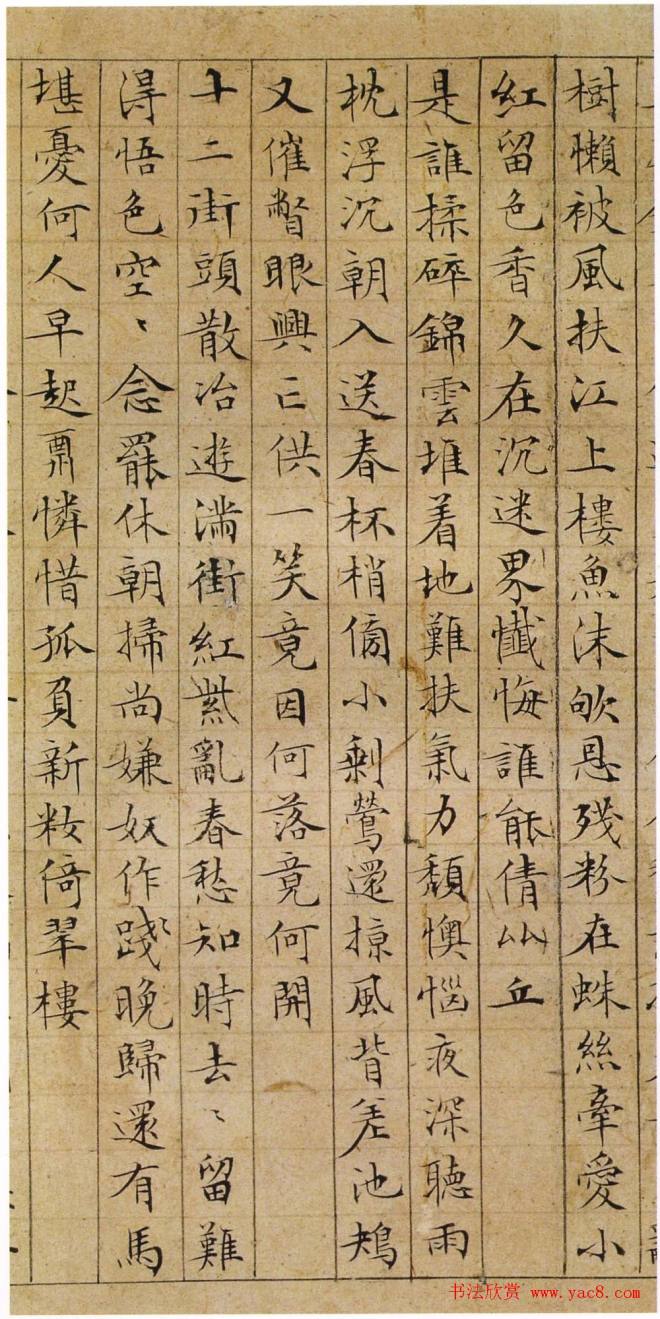 樹懶被風扶江上樓魚沫欨恩殘粉在蛛絲牽愛小
紅留色香久在沉迷界懺悔誰能倩㕣丘
是誰揉碎錦雲堆着地難扶氣力頹懊惱夜深聽雨
枕浮沉朝入送春杯梢傍小剩鶯還掠風背差池鴂
又催瞥眼興亡供一笑竟因何落竟何開
十二街頭散冶遊滿街紅紫亂春愁知時去〻留難
得悟色空〻念罷休朝掃尚嫌妖作踐晚歸還有馬
堪憂何人早起肅憐惜孤負新妝倚翠樓
书法欣赏 www.yac8.com